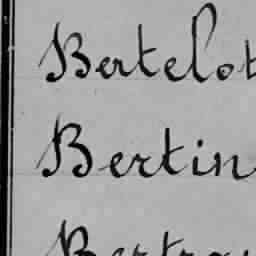 Bertelot
Bertin